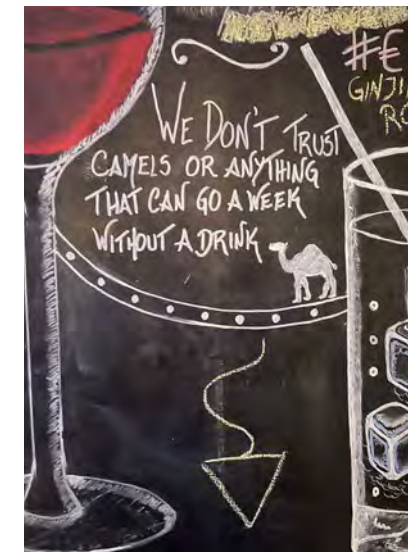 #€
GINJI
WE DON'T TRUST
CAMELS OR ANYTHING
THAT CAN GO A WEEK
WITHOUT A DRINK